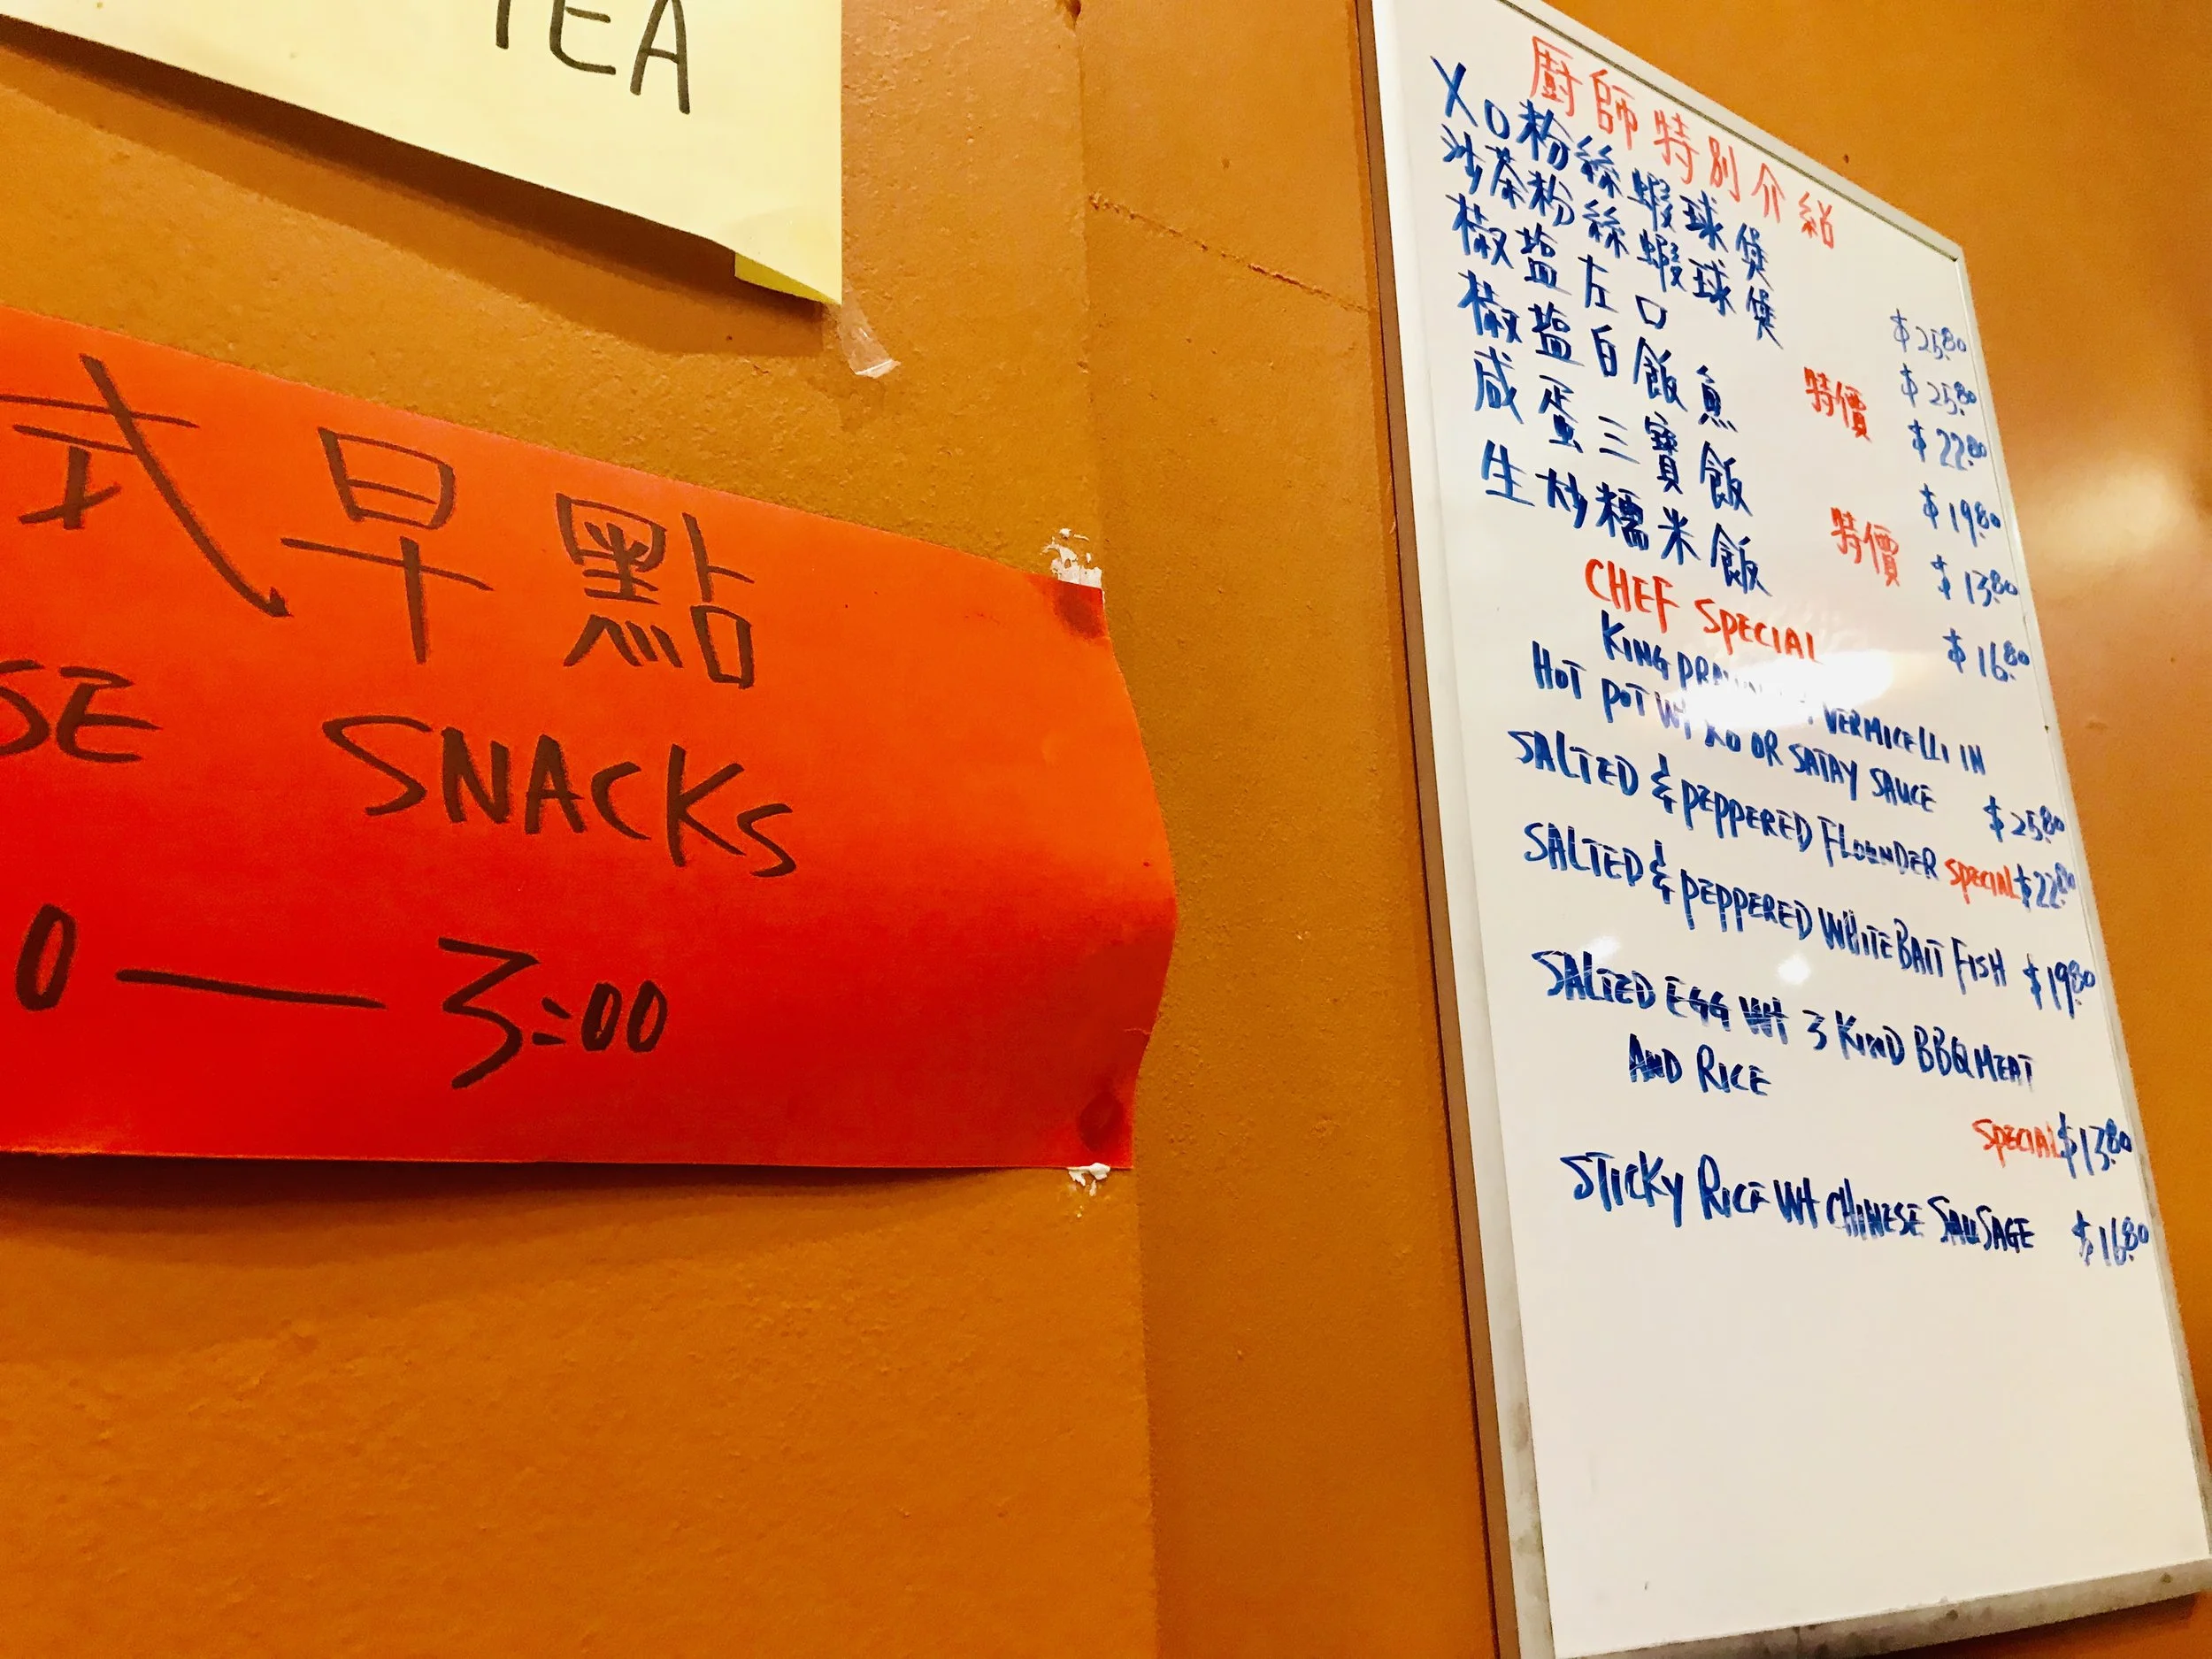 TEA
式早點
SE SNACKS
0 — 3:00
廚師特別介紹
XO粉絲蝦球煲 $25.80
沙茶粉絲蝦球煲 $25.80
椒盐左口 特價 $22.80
椒盐白飯魚 $19.80
咸蛋三寶飯 特價 $13.80
生炒糯米飯 $16.80
CHEF SPECIAL
KING PRAWN VERMICELLI IN
HOT POT WT XO OR SATAY SAUCE $25.80
SALTED & PEPPERED FLOUNDER SPECIAL $22.80
SALTED & PEPPERED WHITE BAIT FISH $19.80
SALTED EGG WT 3 KIND BBQ MEAT
AND RICE
SPECIAL $13.80
STICKY RICE WT CHINESE SAUSAGE $16.80